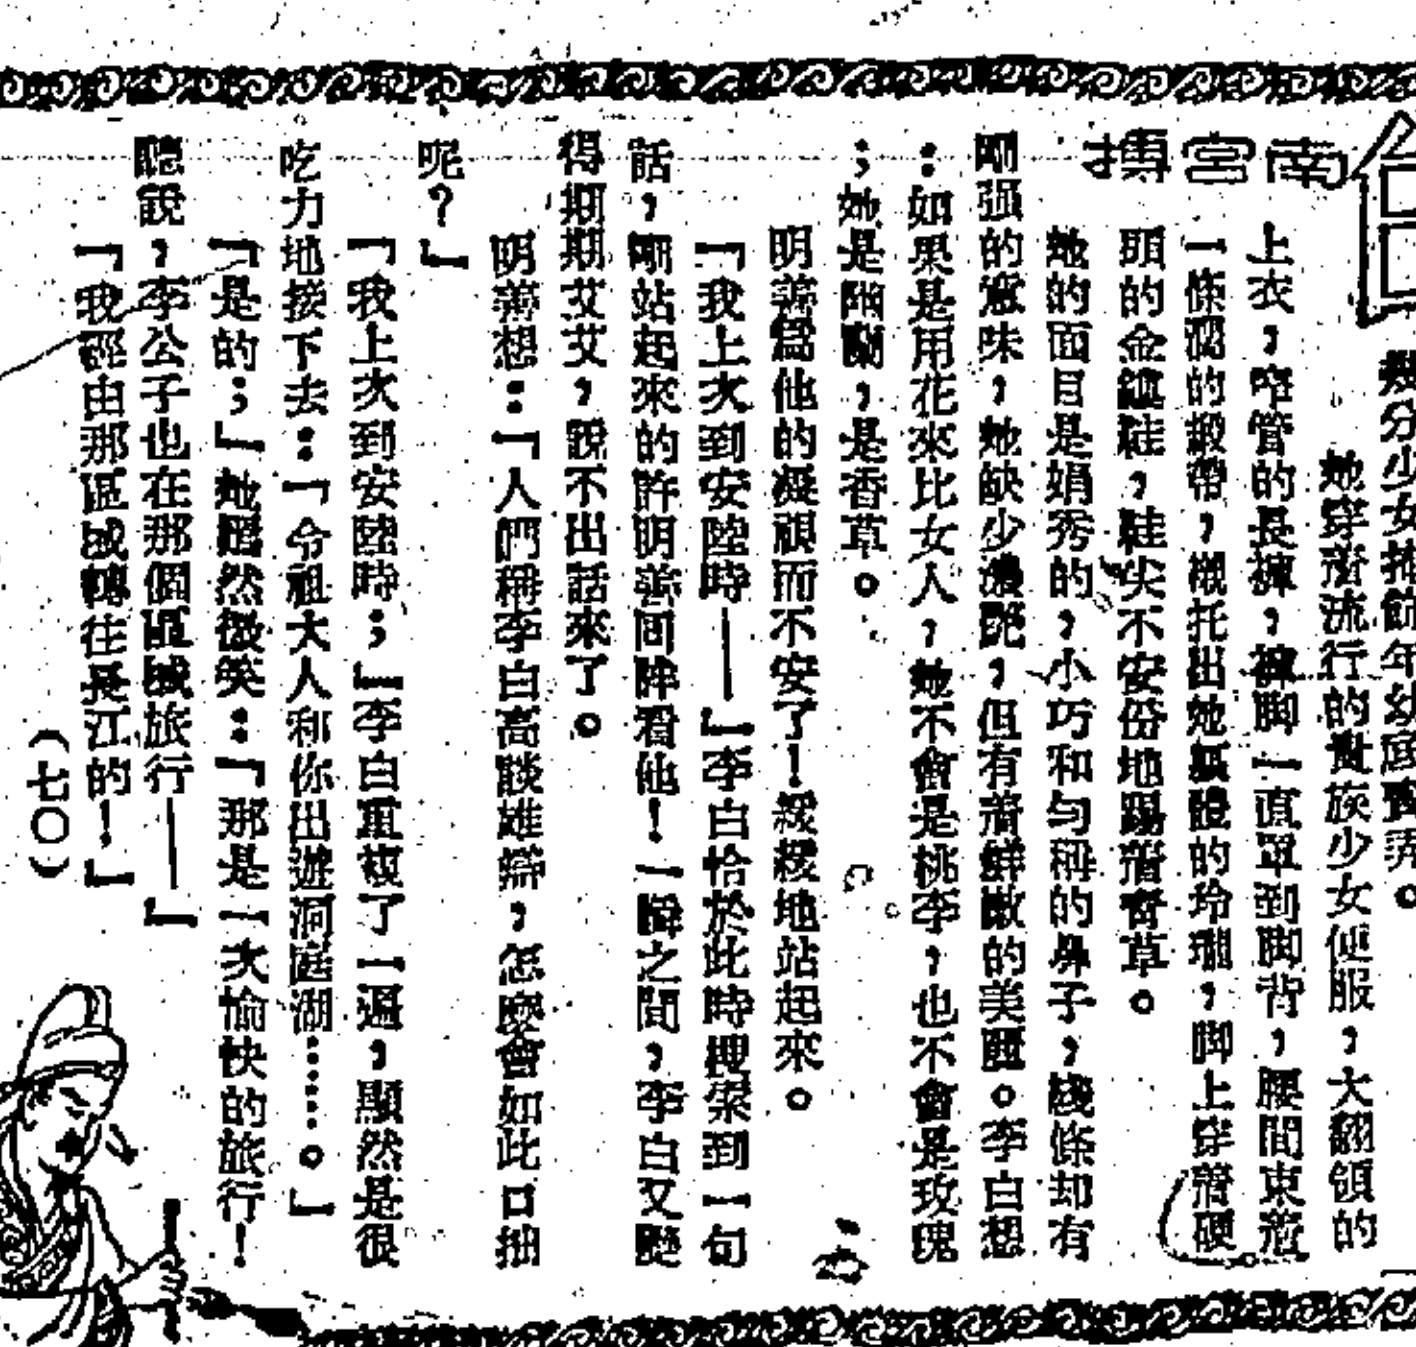 南宮搏
幾分少女裝飾年幼底賣弄。
她穿著流行的貴族少女便服，大翻領的
上衣，窄管的長褲，褲脚一直罩到脚背，腰間束著
一條濶的緞帶，襯托出她軀體的玲瓏，脚上穿著硬
頭的金鏤鞋，鞋尖不安份地踢著青草。
她的面目是娟秀的，小巧和勻稱的鼻子，綫條却有
剛强的意味，她缺少濃艷，但有着鮮嫩的美麗。李白想
：如果是用花來比女人，她不會是桃李，也不會是玫瑰
；她是幽蘭，是香草。
明善爲他的凝視而不安了！緩緩地站起來。
「我上次到安陸時——」李白恰於此時搜索到一句
話，剛站起來的許明善回眸看他！一瞬之間，李白又變
得期期艾艾，說不出話來了。
明善想：「人們稱李白高談雄辯，怎麼會如此口拙
呢？」
「我上次到安陸時；」李白重複了一遍，顯然是很
吃力地接下去：「令祖大人和你出遊洞庭湖……。」
「是的；」她嫣然微笑：「那是一次愉快的旅行！
聽說，李公子也在那個區域旅行——」
「我經由那區域轉往長江的！」
（七〇）